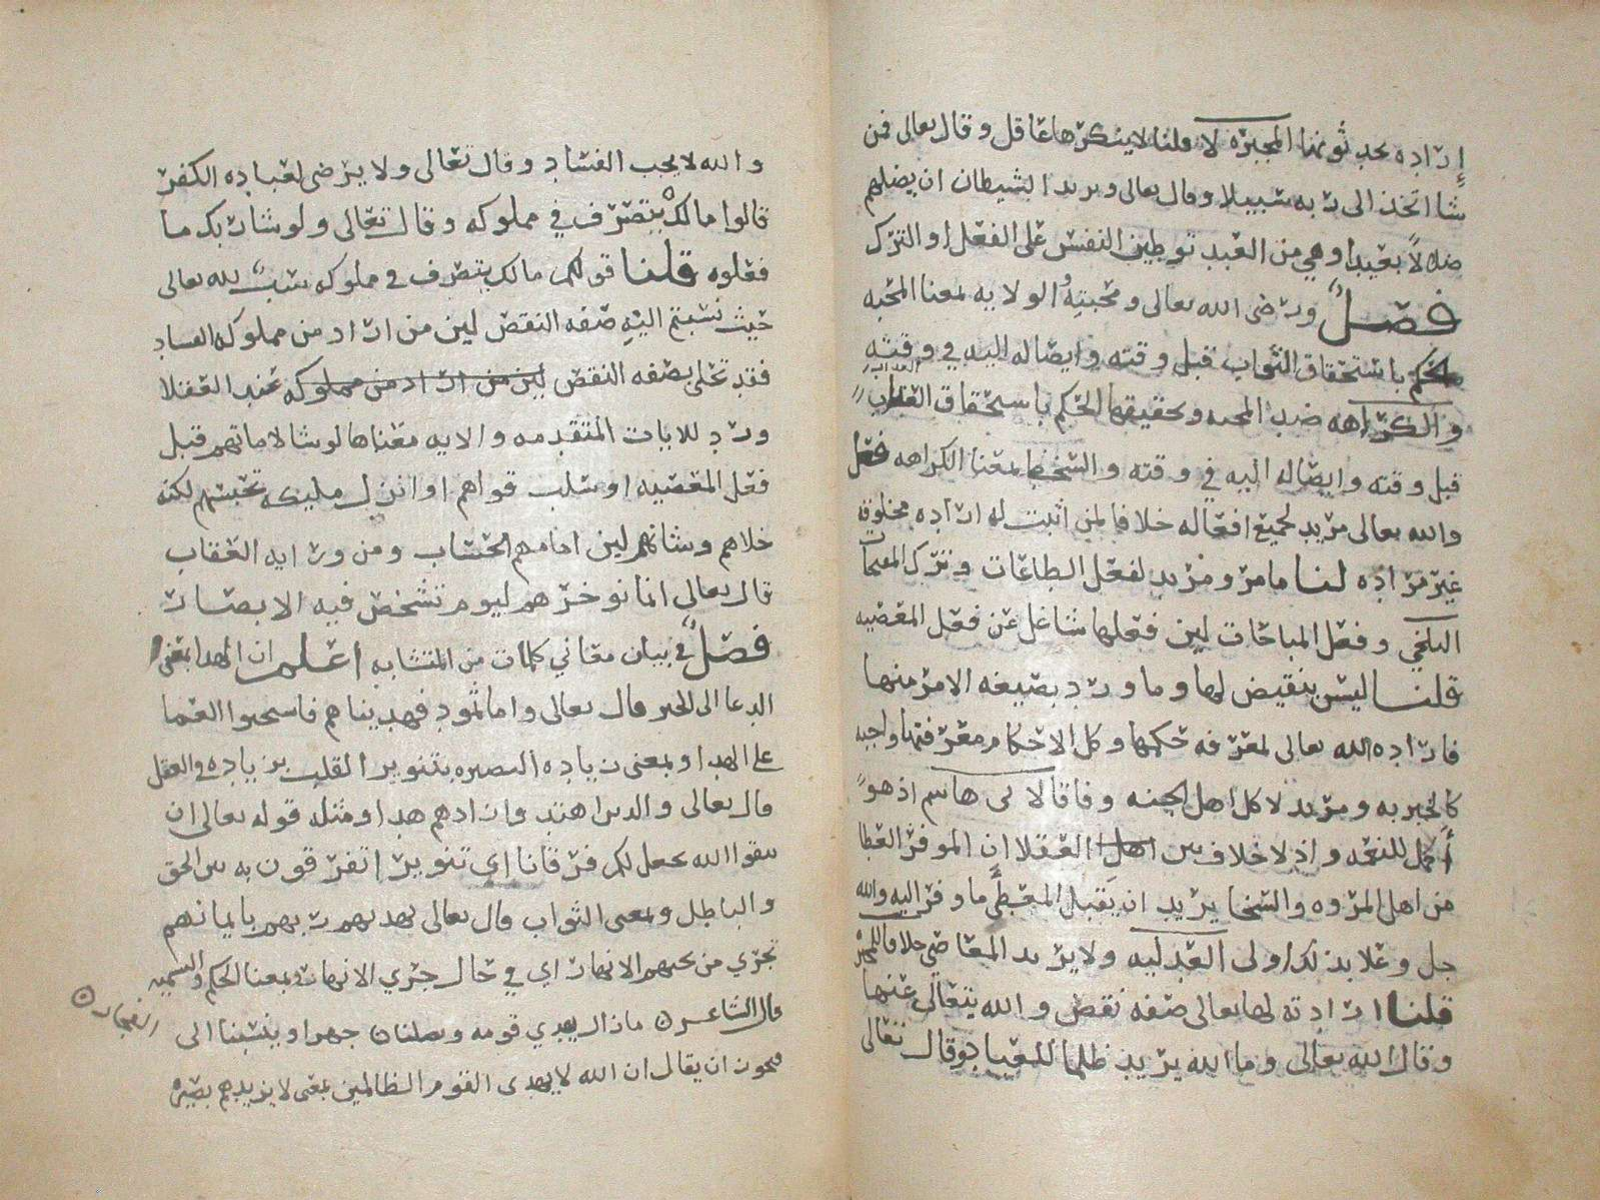 إرادة يحدثونها المجبره لا قلنا لا ينكرها عاقل وقال تعالى فمن
شا اتخذ الى ربه سبيلا وقال تعالى ويريد الشيطان ان يضلهم
ضلالًا بعيدا وهي من العبد توطين النفس على الفعل او الترك
فصل ورضى الله تعالى ومحبته والولايه لمعنا المحبه
الحكم باستحقاق الثواب قبل وقته وايصاله اليه في وقته
والكراهه ضد المحبه وحقيقتها الحكم باستحقاق العذاب
قبل وقته وايصاله اليه في وقته والسخط لمعنا الكراهه فصل
والله تعالى مريد لجميع افعاله خلافا لمن اثبت له اراده مخلوقه
غير مراده لنا ما مر ومريد لفعل الطاعات وترك المقبحات
البلخي وفعل المباحات لين فعلها شاغل عن فعل المعصيه
قلنا ليس بنقيض لها وما ورد بصيغه الامر منها
فاراده الله تعالى لمعرفه حكمها وكل الاحكام معرفتها واجبه
كالخبر به ومريد لاكل اهل الجنه وفاقا لابي هاشم اذ هو
أكمل للنعمه واذ لا خلاف بين اهل العقلا ان الموفر العطا
من اهل المروه والسخا يريد ان يقبل المعطَى ما وفر اليه والله
جل وعلا بذلك اولى العدليه ولا يريد المعاصي خلافا للمجبره
قلنا ارادته لها تعالى صفه نقص والله يتعالى عنها
وقال الله تعالى وما الله يريد ظلما للعباد وقال تعالى
والله لا يحب الفساد وقال تعالى ولا يرضى لعباده الكفر
قالوا مالك يتصرف في مملوكه وقال تعالى ولو شا ربك ما
فعلوه قلنا قولكم مالك يتصرف في مملوكه سب لله تعالى
حيث نسبتم اليه صفه النقص لين من اراد من مملوكه الفساد
فقد تحلى بصفه النقص لين من اراد من مملوكه عند العقلا
ورد للايات المتقدمه والايه معناها لو شا لاماتهم قبل
فعل المعصيه او سلب قواهم او انزل مليكه تحبسهم لكنه
خلاهم وشانهم لين امامهم الحساب ومن ورايه العقاب
قال تعالى انما نوخرهم ليوم تشخص فيه الابصار
فصل في بيان معاني كلمات من المتشابه اعلم ان الهدا بمعنى
الدعا الى الخير قال تعالى واما ثمود فهديناهم فاستحبوا العما
على الهدا وبمعنى زياده البصيره بتنوير القلب بزياده في العقل
قال تعالى والذين اهتدوا زادهم هدا ومثله قوله تعالى ان
تتقوا الله يجعل لكم فرقانا اي تنويرا تفرقون به بين الحق
والباطل وبمعنى الثواب قال تعالى يهديهم ربهم بايمانهم
تجري من تحتهم الانهار اي في حال جري الانهار وبمعنا الحكم والتسميه
قال الشاعر ما زال يهدي قومه ويضلنا جهرا وينسبنا الى
الفجار
فيجوز ان يقال ان الله لا يهدي القوم الظالمين بمعنى لا يزيدهم بصيره